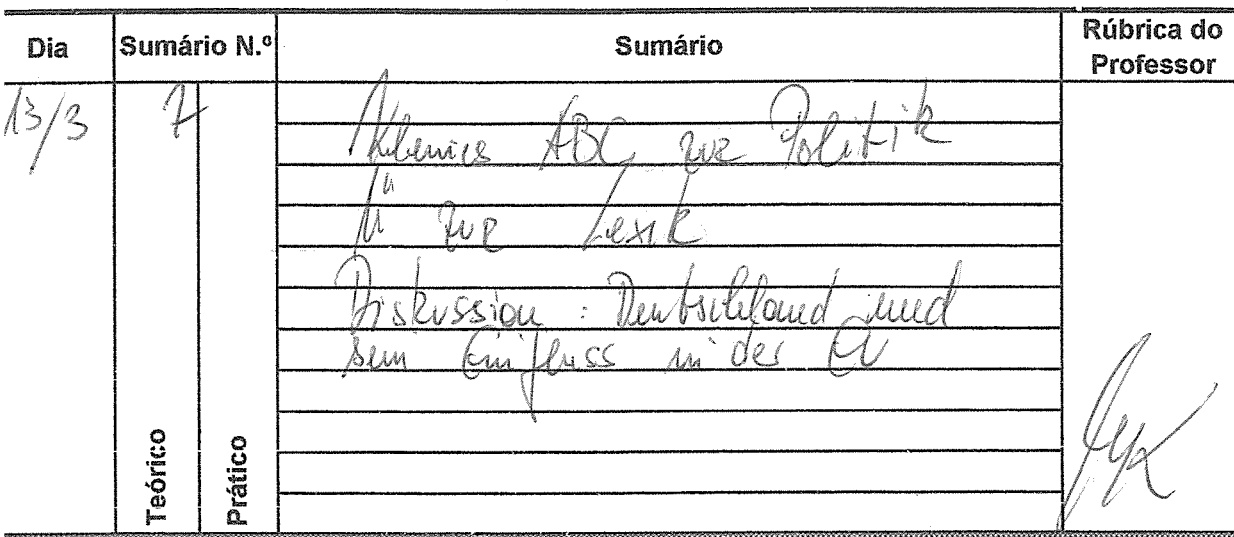 Dia Sumário N.º Sumário Rúbrica do Professor
13/3 7 Kleines ABC zur Politik
Ü zur Lexik
Diskussion : Deutschland und
sein Einfluss in der EU
Teórico
Prático